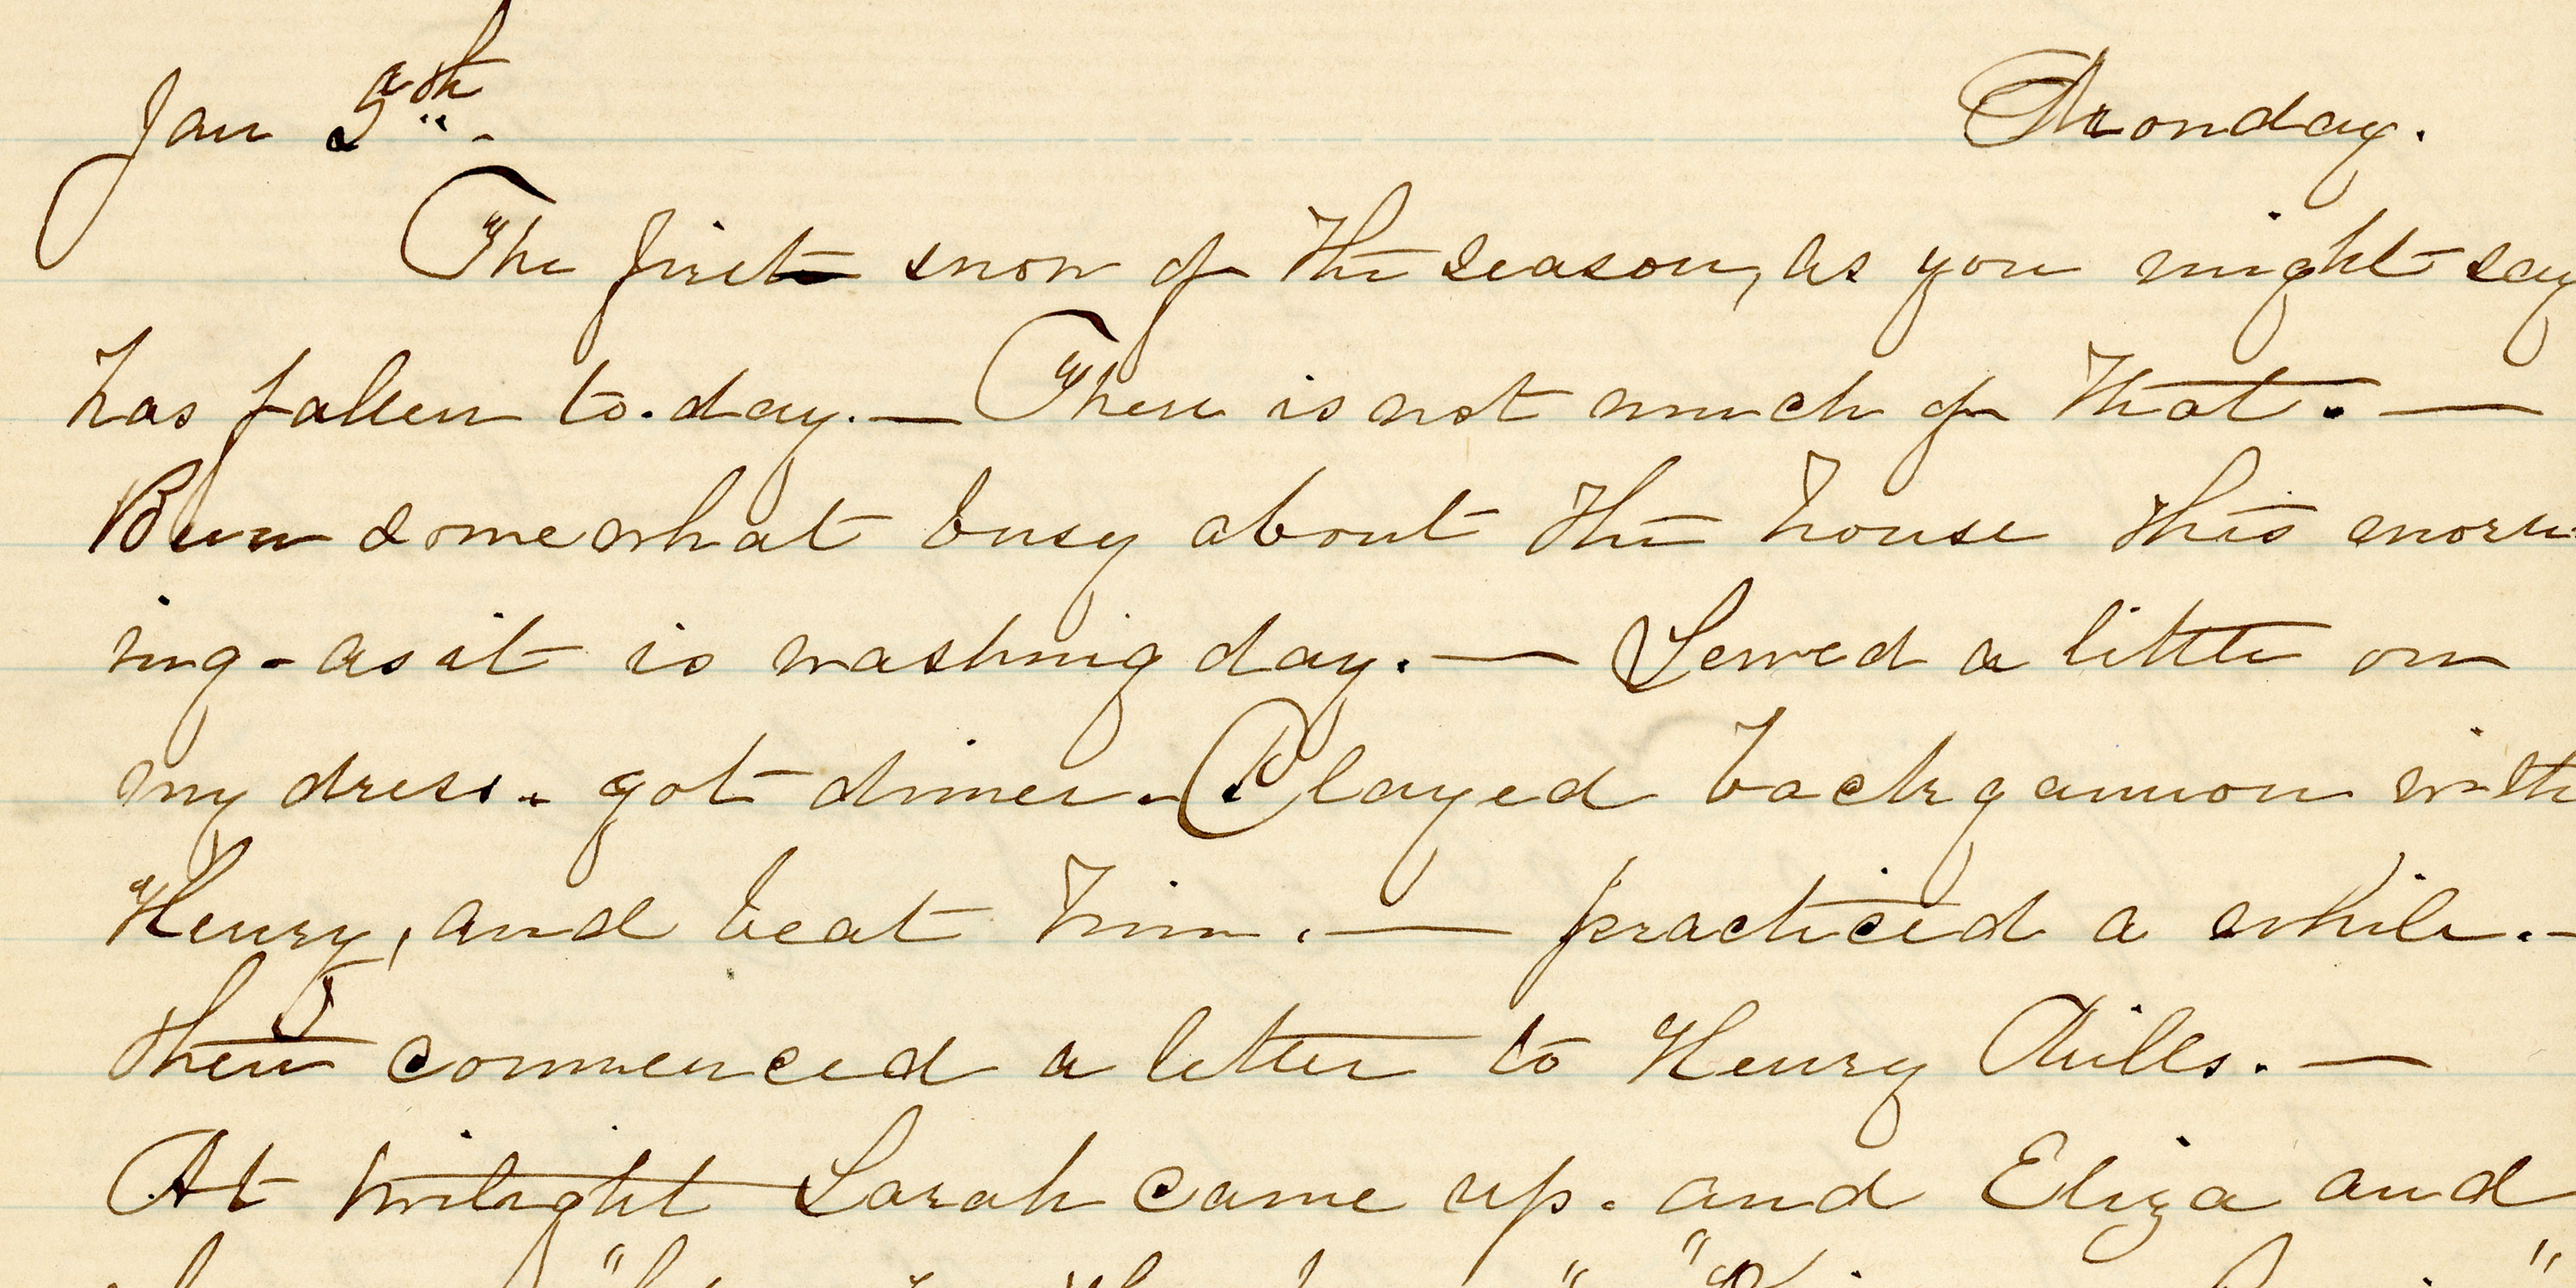 Jan 5th. Monday.
The first snow of the season, as you might say
has fallen to-day. — There is not much of that. —
Been somewhat busy about the house this morn-
ing - as it is washing day. — Sewed a little on
my dress. got dinner. Played backgammon with
Henry, and beat him. — practiced a while. -
then commenced a letter to Henry Mills. —
At twilight Sarah came up. and Eliza and